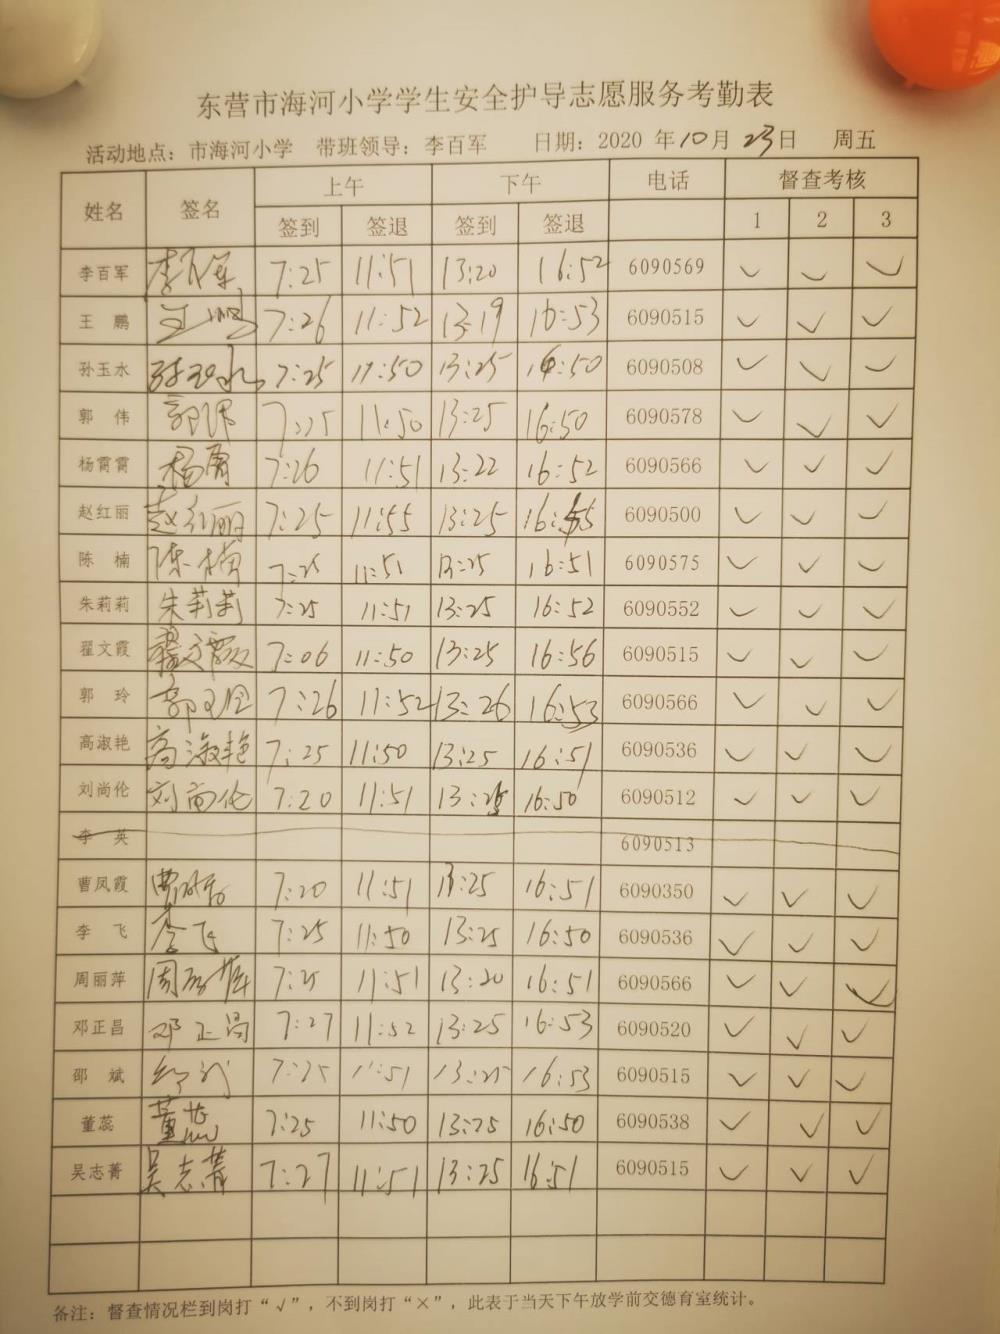 东营市海河小学学生安全护导志愿服务考勤表
活动地点：市海河小学 带班领导：李百军 日期：2020 年10月 23日 周五
姓名 签名 上午 下午 电话 督查考核
签到 签退 签到 签退 1 2 3
李百军 李百军 7:25 11:51 13:20 16:52 6090569 ✓ ✓ ✓
王 鹏 王鹏 7:26 11:52 13:19 16:53 6090515 ✓ ✓ ✓
孙玉水 孙玉水 7:25 11:50 13:25 16:50 6090508 ✓ ✓ ✓
郭 伟 郭伟 7:25 11:50 13:25 16:50 6090578 ✓ ✓ ✓
杨霄霄 杨霄 7:26 11:51 13:22 16:52 6090566 ✓ ✓ ✓
赵红丽 赵红丽 7:25 11:55 13:25 16:55 6090500 ✓ ✓ ✓
陈 楠 陈楠 7:25 11:51 13:25 16:51 6090575 ✓ ✓ ✓
朱莉莉 朱莉莉 7:25 11:51 13:25 16:52 6090552 ✓ ✓ ✓
翟文霞 翟文霞 7:06 11:50 13:25 16:56 6090515 ✓ ✓ ✓
郭 玲 郭玲 7:26 11:52 13:26 16:53 6090566 ✓ ✓ ✓
高淑艳 高淑艳 7:25 11:50 13:25 16:51 6090536 ✓ ✓ ✓
刘尚伦 刘尚伦 7:20 11:51 13:25 16:50 6090512 ✓ ✓ ✓
李 英 6090513
曹凤霞 7:20 11:51 13:25 16:51 6090350 ✓ ✓ ✓
李 飞 李飞 7:25 11:50 13:25 16:50 6090536 ✓ ✓ ✓
周丽萍 周丽萍 7:25 11:51 13:20 16:51 6090566 ✓ ✓ ✓
邓正昌 邓正昌 7:27 11:52 13:25 16:53 6090520 ✓ ✓ ✓
邵 斌 邵斌 7:25 11:51 13:25 16:53 6090515 ✓ ✓ ✓
董蕊 董蕊 7:25 11:50 13:25 16:50 6090538 ✓ ✓ ✓
吴志菁 吴志菁 7:27 11:51 13:25 16:51 6090515 ✓ ✓ ✓
备注：督查情况栏到岗打“√”，不到岗打“×”，此表于当天下午放学前交德育室统计。